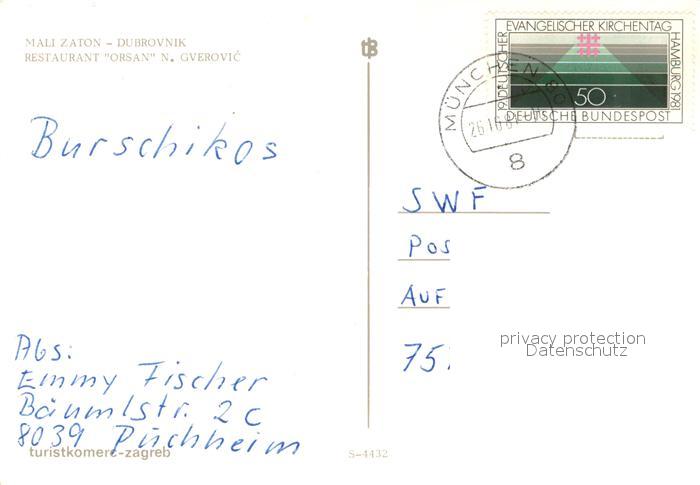 MALI ZATON – DUBROVNIK
RESTAURANT "ORSAN" N. GVEROVIĆ
tB
19. DEUTSCHER EVANGELISCHER KIRCHENTAG HAMBURG 1981
50
DEUTSCHE BUNDESPOST
MÜNCHEN 80
8
Burschikos
SWF
Pos
AUF
75
privacy protection
Datenschutz
Abs:
Emmy Fischer
Bäumlstr. 2c
8039 Puchheim
turistkomerc-zagreb
S-4432